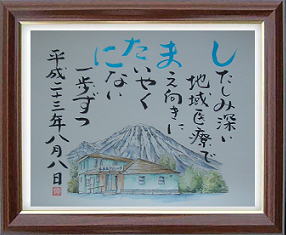 したしみ深い
地域医療で
まえ向きに
たいやく
にない
一歩ずつ
平成二十三年八月八日